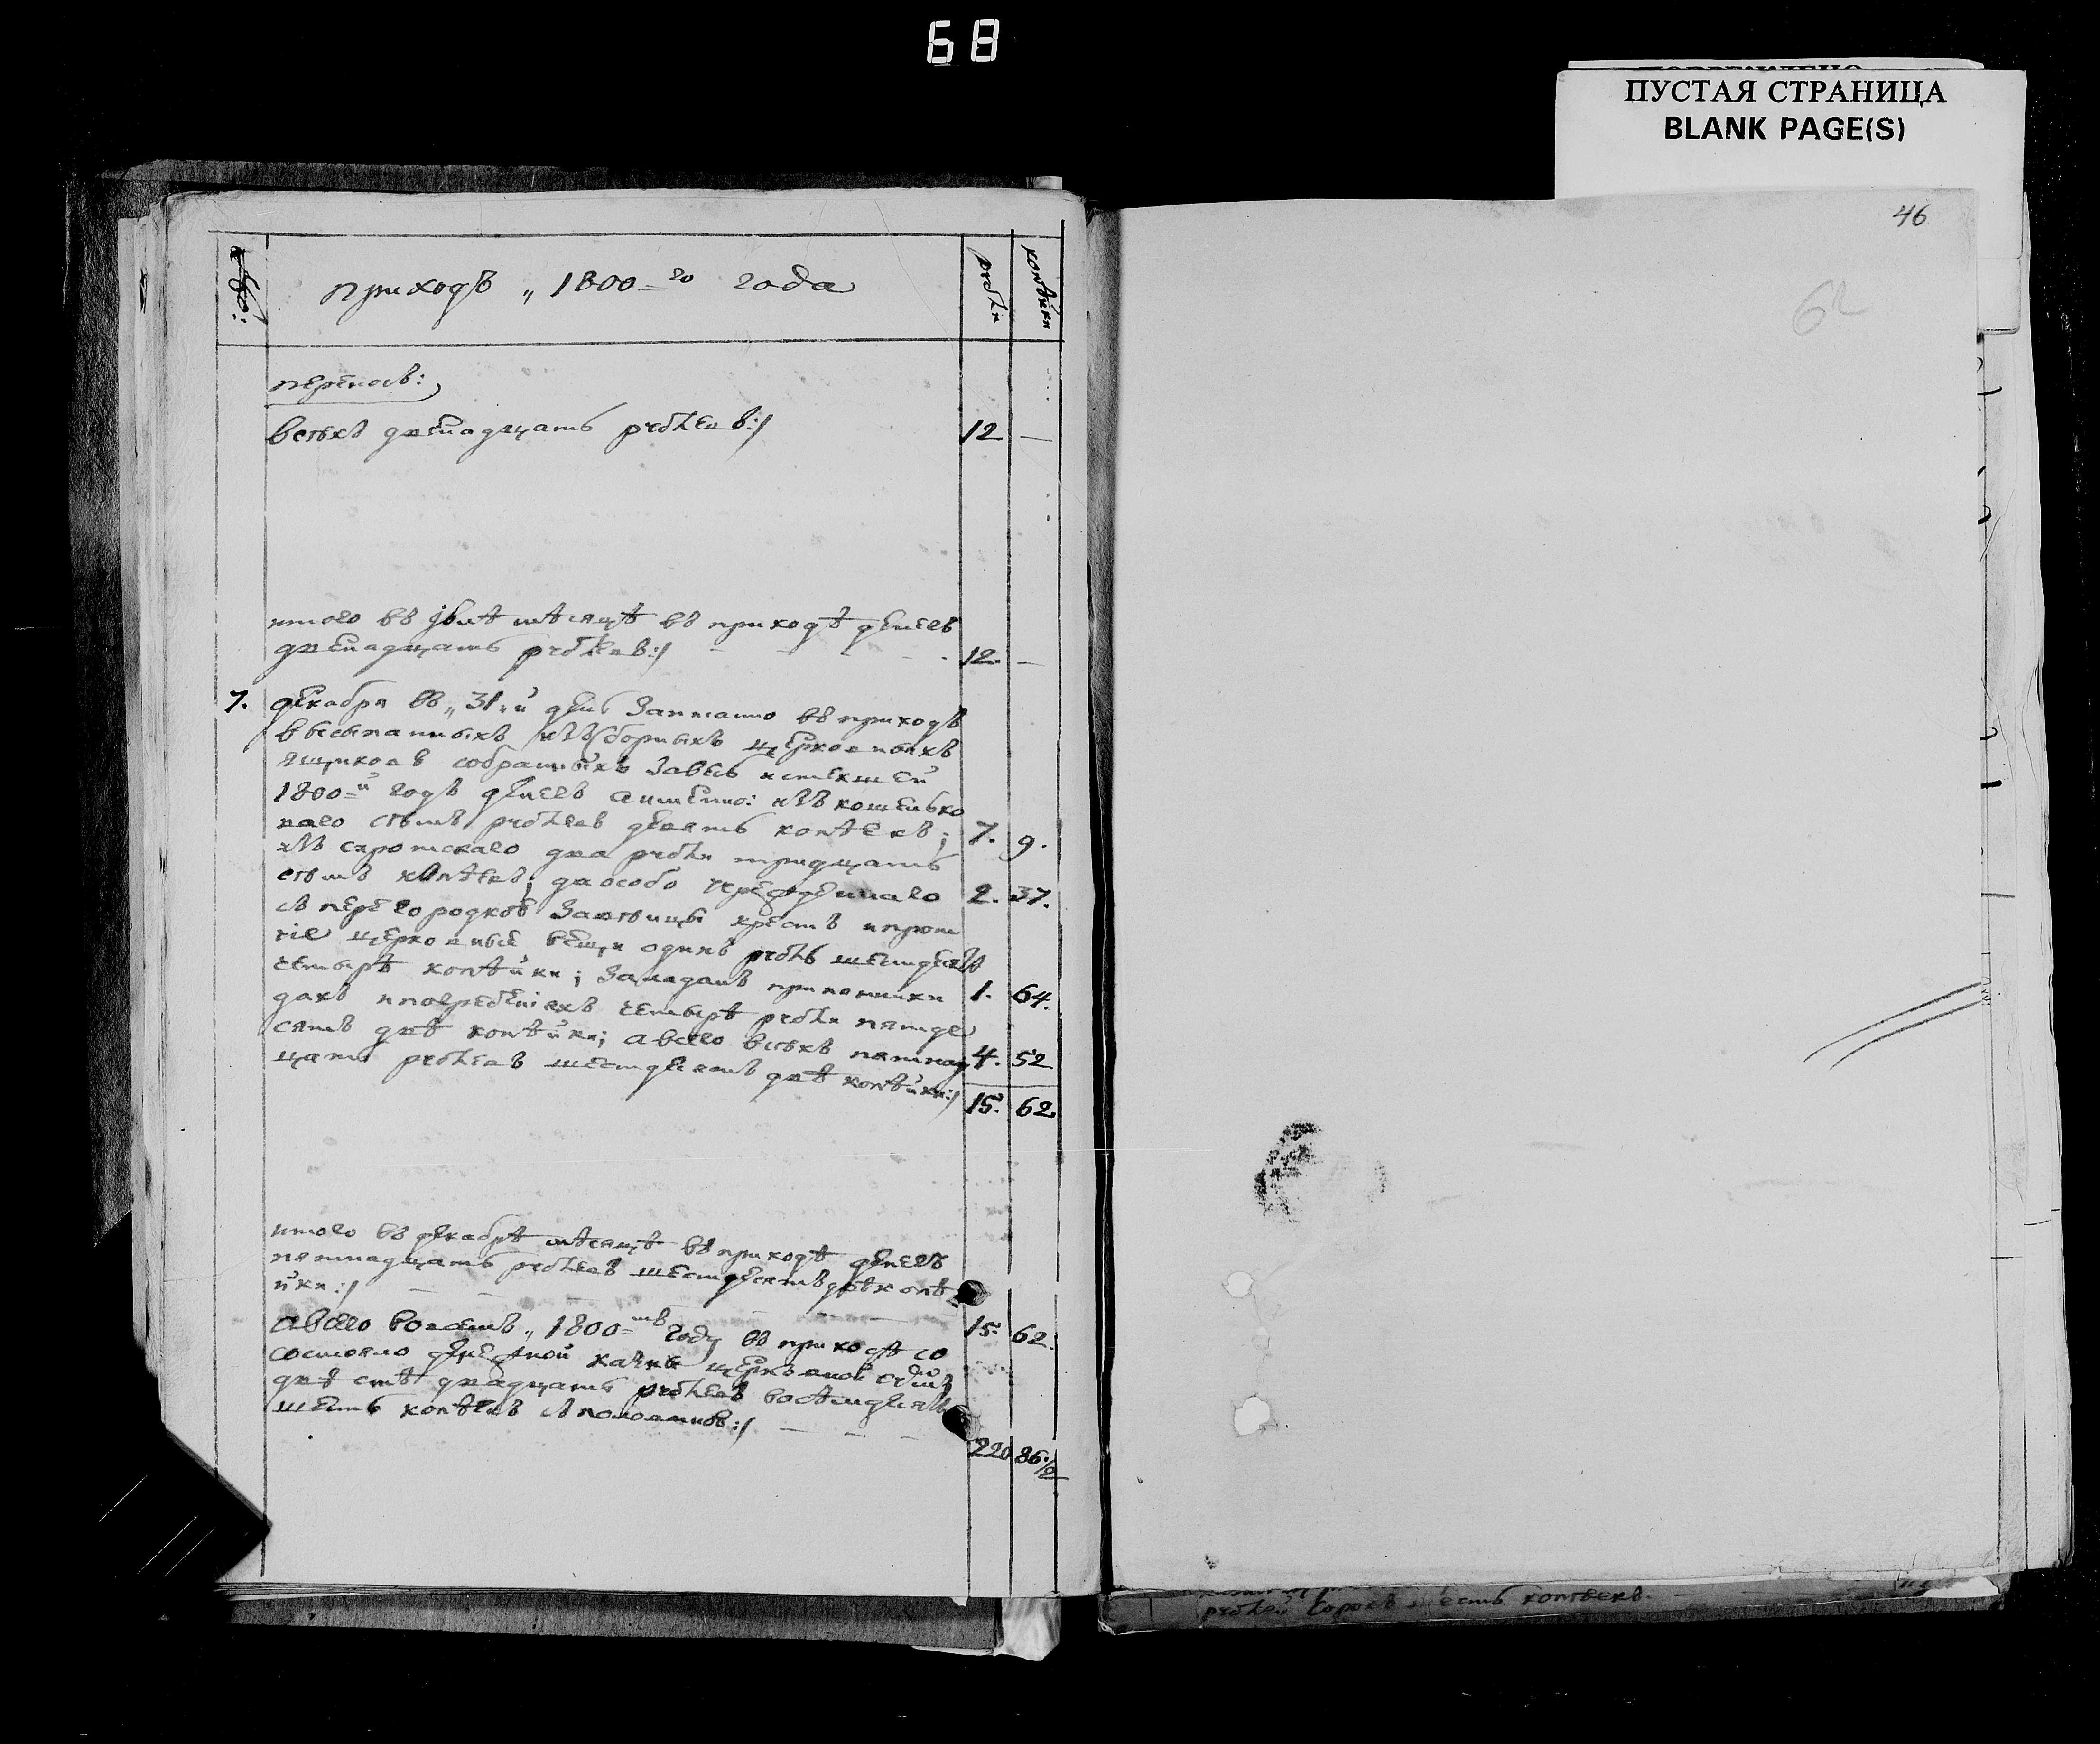 68
ПУСТАЯ СТРАНИЦА
BLANK PAGE(S)
46
62
приходъ „ 1800=го года
рубли
копѣйки
переносъ:
всѣхъ двенадцать рублевъ:/ 12 —
итого въ іюлѣ мѣсяцѣ въ приходѣ денегъ
двенадцать рублевъ:/ 12. —
7. декабря въ „ 31.й день записано въ приходъ
высыпанныхъ изъ зборныхъ церковныхъ
ящиковъ собранныхъ завесь истекшей
1800=й годъ денегъ аимENNO: изъ кошелько
ваго семь рублевъ девять копѣекъ; 7. 9.
изъ сиротскаго два рубли тридцать
семь копѣекъ; 2. 37.
съ перегородковъ крестъ и протчие
церковные вещи одинъ рубль шестдесятъ
четырѣ копѣйки; 1. 64.
и погребенияхъ четырѣ рубли пятде
сятъ двѣ копѣйки; а всего всѣхъ пятнад 4. 52
цать рублевъ шестдесятъ двѣ копѣйки:/ 15. 62
итого въ декабрѣ мѣсяцѣ въ приходѣ денегъ
пятнадцать рублевъ шестдесятъ двѣ копѣ
йки:/ 15. 62.
а всего во всемъ „ 1800=мъ году въ приходѣ со
состояло денежной казны церковной суммы
двѣстѣ двадцать рублевъ восѣмдесятъ
шесть копѣекъ съ половиною:/
220 86 1/2
рублей сорокъ шесть копѣекъ.